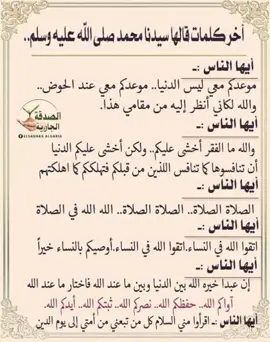 آخر كلمات قالها سيدنا محمد صلى الله عليه وسلم..
أيها الناس :ـ
موعدكم معي ليس الدنيا.. موعدكم معي عند الحوض..
والله لكاني أنظر إليه من مقامي هذا.
أيها الناس :ـ
الصدقة
الجارية
والله ما الفقر أخشى عليكم.. ولكن أخشى عليكم الدنيا
أن تنافسوها كما تنافس اللذين من قبلكم فتهلككم كما اهلكتهم
أيها الناس :ـ
الصلاة الصلاة.. الصلاة الصلاة.. الله الله في الصلاة
أيها الناس :ـ
اتقوا الله في النساء.اتقوا الله في النساء.أوصيكم بالنساء خيراً
أيها الناس :ـ
إن عبدا خيره الله بين الدنيا وبين ما عند الله فاختار ما عند الله
آواكم الله.. حفظكم الله.. نصركم الله.. ثبتكم الله.. أيدكم الله
أيها الناس :ـ اقرأوا مني السلام كل من تبعني من أمتي إلى يوم الدين